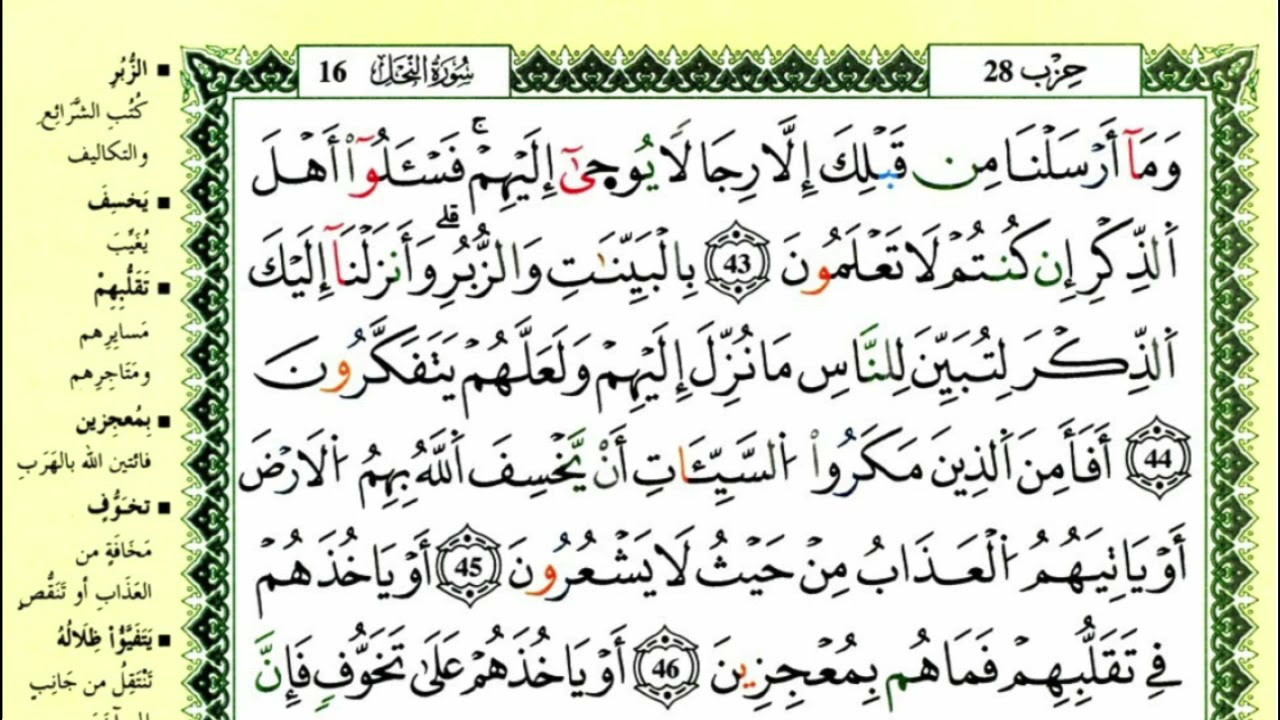 حِزْب 28
سُورَةُ النَّحْلِ 16
وَمَآ أَرْسَلْنَا مِن قَبْلِكَ إِلَّا رِجَالًا يُوحِىٰٓ إِلَيْهِمْۖ فَسْـَٔلُوٓاْ أَهْلَ
اَ۬لذِّكْرِ إِن كُنتُمْ لَا تَعْلَمُونَ 43 بِالْبَيِّنَٰتِ وَالزُّبُرِۗ وَأَنزَلْنَآ إِلَيْكَ
اَ۬لذِّكْرَ لِتُبَيِّنَ لِلنَّاسِ مَا نُزِّلَ إِلَيْهِمْ وَلَعَلَّهُمْ يَتَفَكَّرُونَ
44 أَفَأَمِنَ اَ۬لذِينَ مَكَرُواْ اُ۬لسَّيِّـَٔاتِ أَنْ يَّخْسِفَ اَ۬للَّهُ بِهِمُ اُ۬لَارْضَ
أَوْ يَاتِيَهُمُ اُ۬لْعَذَابُ مِنْ حَيْثُ لَا يَشْعُرُونَ 45 أَوْ يَاخُذَهُمْ
فِي تَقَلُّبِهِمْ فَمَا هُم بِمُعْجِزِينَ 46 أَوْ يَاخُذَهُمْ عَلَىٰ تَخَوُّفٍ فَإِنَّ
■ الزُّبُرِ
كُتُبِ الشَّرَائِعِ
والتكاليف
■ يَخسِفَ
يُغَيِّبَ
■ تَقَلُّبِهِمْ
مَسايِرِهم
ومَتَاجِرِهم
■ بِمُعجِزين
فائتين الله بالهَرَبِ
■ تخوُّفٍ
مَخَافَةٍ من
العَذَابِ أو تَنَقُّصٍ
■ يَتَفَيَّؤُاْ ظِلَالُهُ
تَنْتَقِلُ من جَانِبٍ